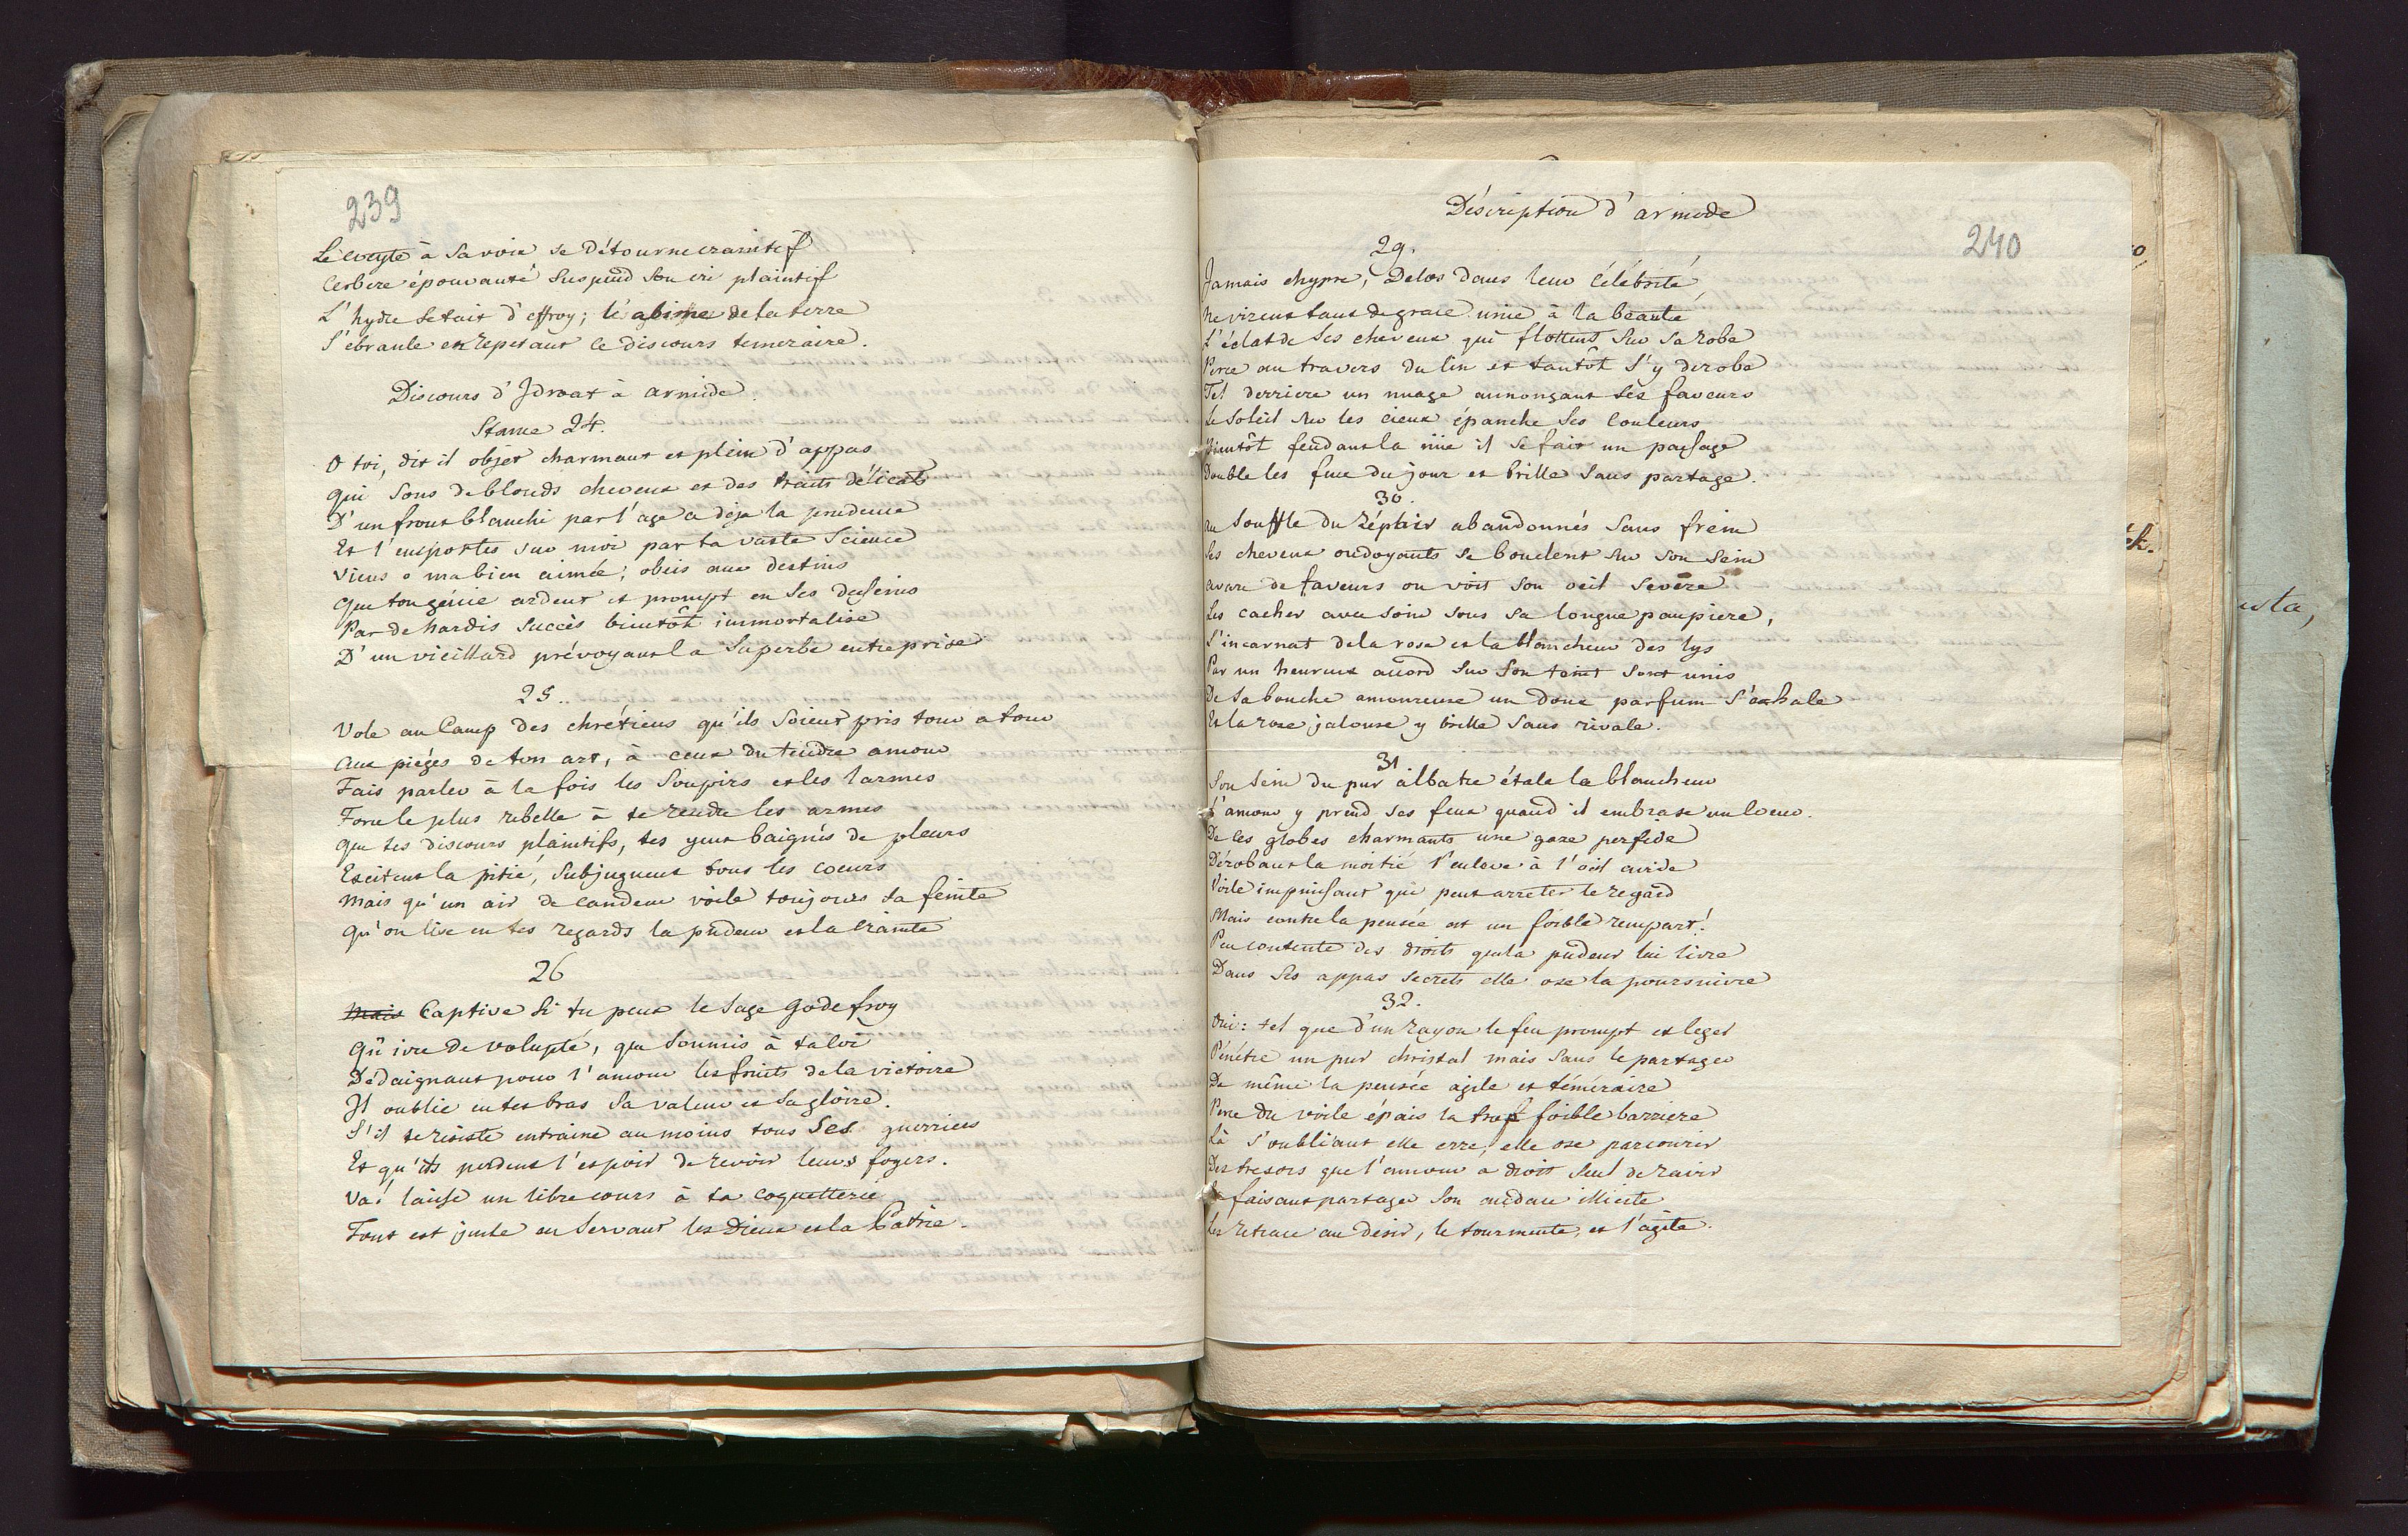 239
Le Cocyte à sa voix, se détourne craintif
Cerbere épouvanté suspend son cri plaintif
L'hydre se tait d'effroy; le abime de la terre
S'ebranle en repetant ce discours temeraire.
Discours d'Idroat à armide.
Stance 24.
O toi, dit il objet charmant et plein d'appas
qui sous de blonds cheveux et des traits délicats
D'un front blanchi par l'age a deja la prudence
Et l'emportes sur moi par ta vaste science
Viens o ma bien aimée, obeis aux destins
que ton génie ardent et prompt en ses desseins
Par de hardis succès bientôt immortalise
D'un vieillard prévoyant la superbe entreprise
25..
Vole au Camp des chrétiens qu'ils soient pris tour a tour
Aux pièges de ton art, à ceux du tendre amour
Fais parler à la fois les soupirs et les larmes
Force le plus rebelle à te rendre les armes
que tes discours plaintifs, tes yeux baignés de pleurs
Excitent la pitié, subjuguent tous les coeurs
Mais qu'un air de candeur voile toujours ta feinte
qu'on lise en tes regards la pudeur et la crainte
26
Mais Captive si tu peux le sage Godefroy
Qu'ivre de volupté, que soumis à ta loi
Dédaignant pour l'amour les fruits de la victoire
Il oublie en tes bras sa valeur et sa gloire.
S'il te résiste entraine au moins tous ses guerriers
Et qu'ils perdent l'espoir de revoir leurs foyers.
Va! laisse un libre cours à ta coquetterie
Tout est juste en servant les Dieux et la Patrie.
Déscription d'armide
240
29.
Jamais chypre, Delos dans leur célébrité,
ne virent tant de grace unie à la beauté
L'éclat de ses cheveux qui flottent sur sa robe
Perce au travers du lin et tantôt s'y derobe
Tel derriere un nuage annonçant ses faveurs
Le soleil sur les cieux épanche ses couleurs
Bientôt fendant la nüe il se fait un passage
Double les feux du jour et brille sans partage.
30.
au souffle du zéphir abandonnés sans frein
Ses cheveux ondoyants se bouclent sur son sein
avare de faveurs on voit son oeil severe
Les cacher avec soin sous sa longue paupiere,
L'incarnat de la rose et la blancheur des lys
Par un heureux accord sur son teint sont unis
De sa bouche amoureuse un doux parfum s'exhale
Et la rose jalouse y brille sans rivale.
31
Son sein du pur albatre étale la blancheur
L'amour y prend ses feux quand il embrase un coeur.
De ces globes charmants une gaze perfide
Dérobant la moitié l'enleve à l'oeil avide
Voile impuissant qui peut arreter le regard
Mais contre la pensée est un foible rempart!
Peu contente des droits que la pudeur lui livre
Dans ses appas secrets elle ose la poursuivre
32.
Oui: tel que d'un rayon le feu prompt et leger
Pénétre un pur christal mais sans le partager
De même la pensée agile et téméraire
Perce du voile épais la trop foible barriere
là s'oubliant elle erre, elle ose parcourir
Des tresors que l'amour a droit seul de ravir
faisant partager son audace illicite
Les retrace au desir, le tourmente, et l'agite.